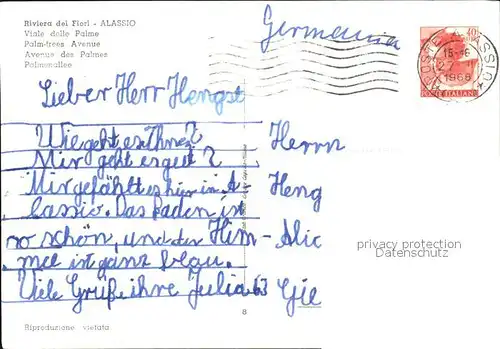 Riviera dei Fiori - ALASSIO
Viale delle Palme
Palm-trees Avenue
Avenue des Palmes
Palmenallee
Germania
40
POSTE ITALIANE
15-16
1968
Lieber Herr Hengst
Wie geht es Ihnen?
Mir geht es gut?
Mir gefällt es hier in A-
lassio. Das Baden ist
so schön, und der Him-
mel ist ganz blau.
Viele Grüße ihre Julia
Herrn
Heng
Alic
63 Gie
privacy protection
Datenschutz
8
Riproduzione vietata